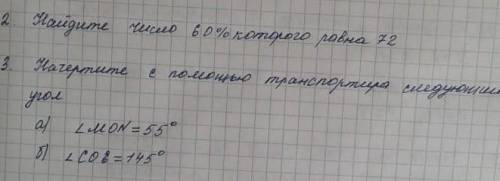 2. Найдите число 60% которого равна 72
3. Начертите с помощью транспортира следующий
угол
а) ∠MON = 55°
б) ∠COE = 145°